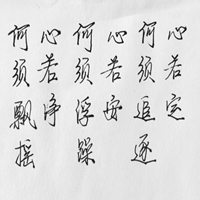 心若定
何须追逐
心若安
何须浮躁
心若净
何须飘摇